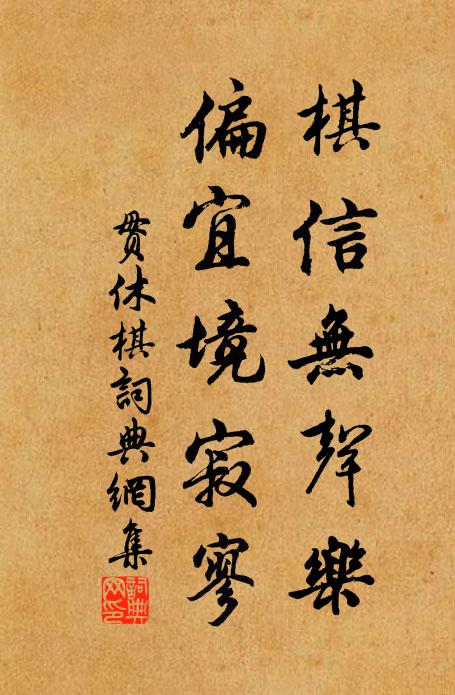 棋信無聲樂
偏宜境寂寥
貫休棋詞典網集
詞典
网印